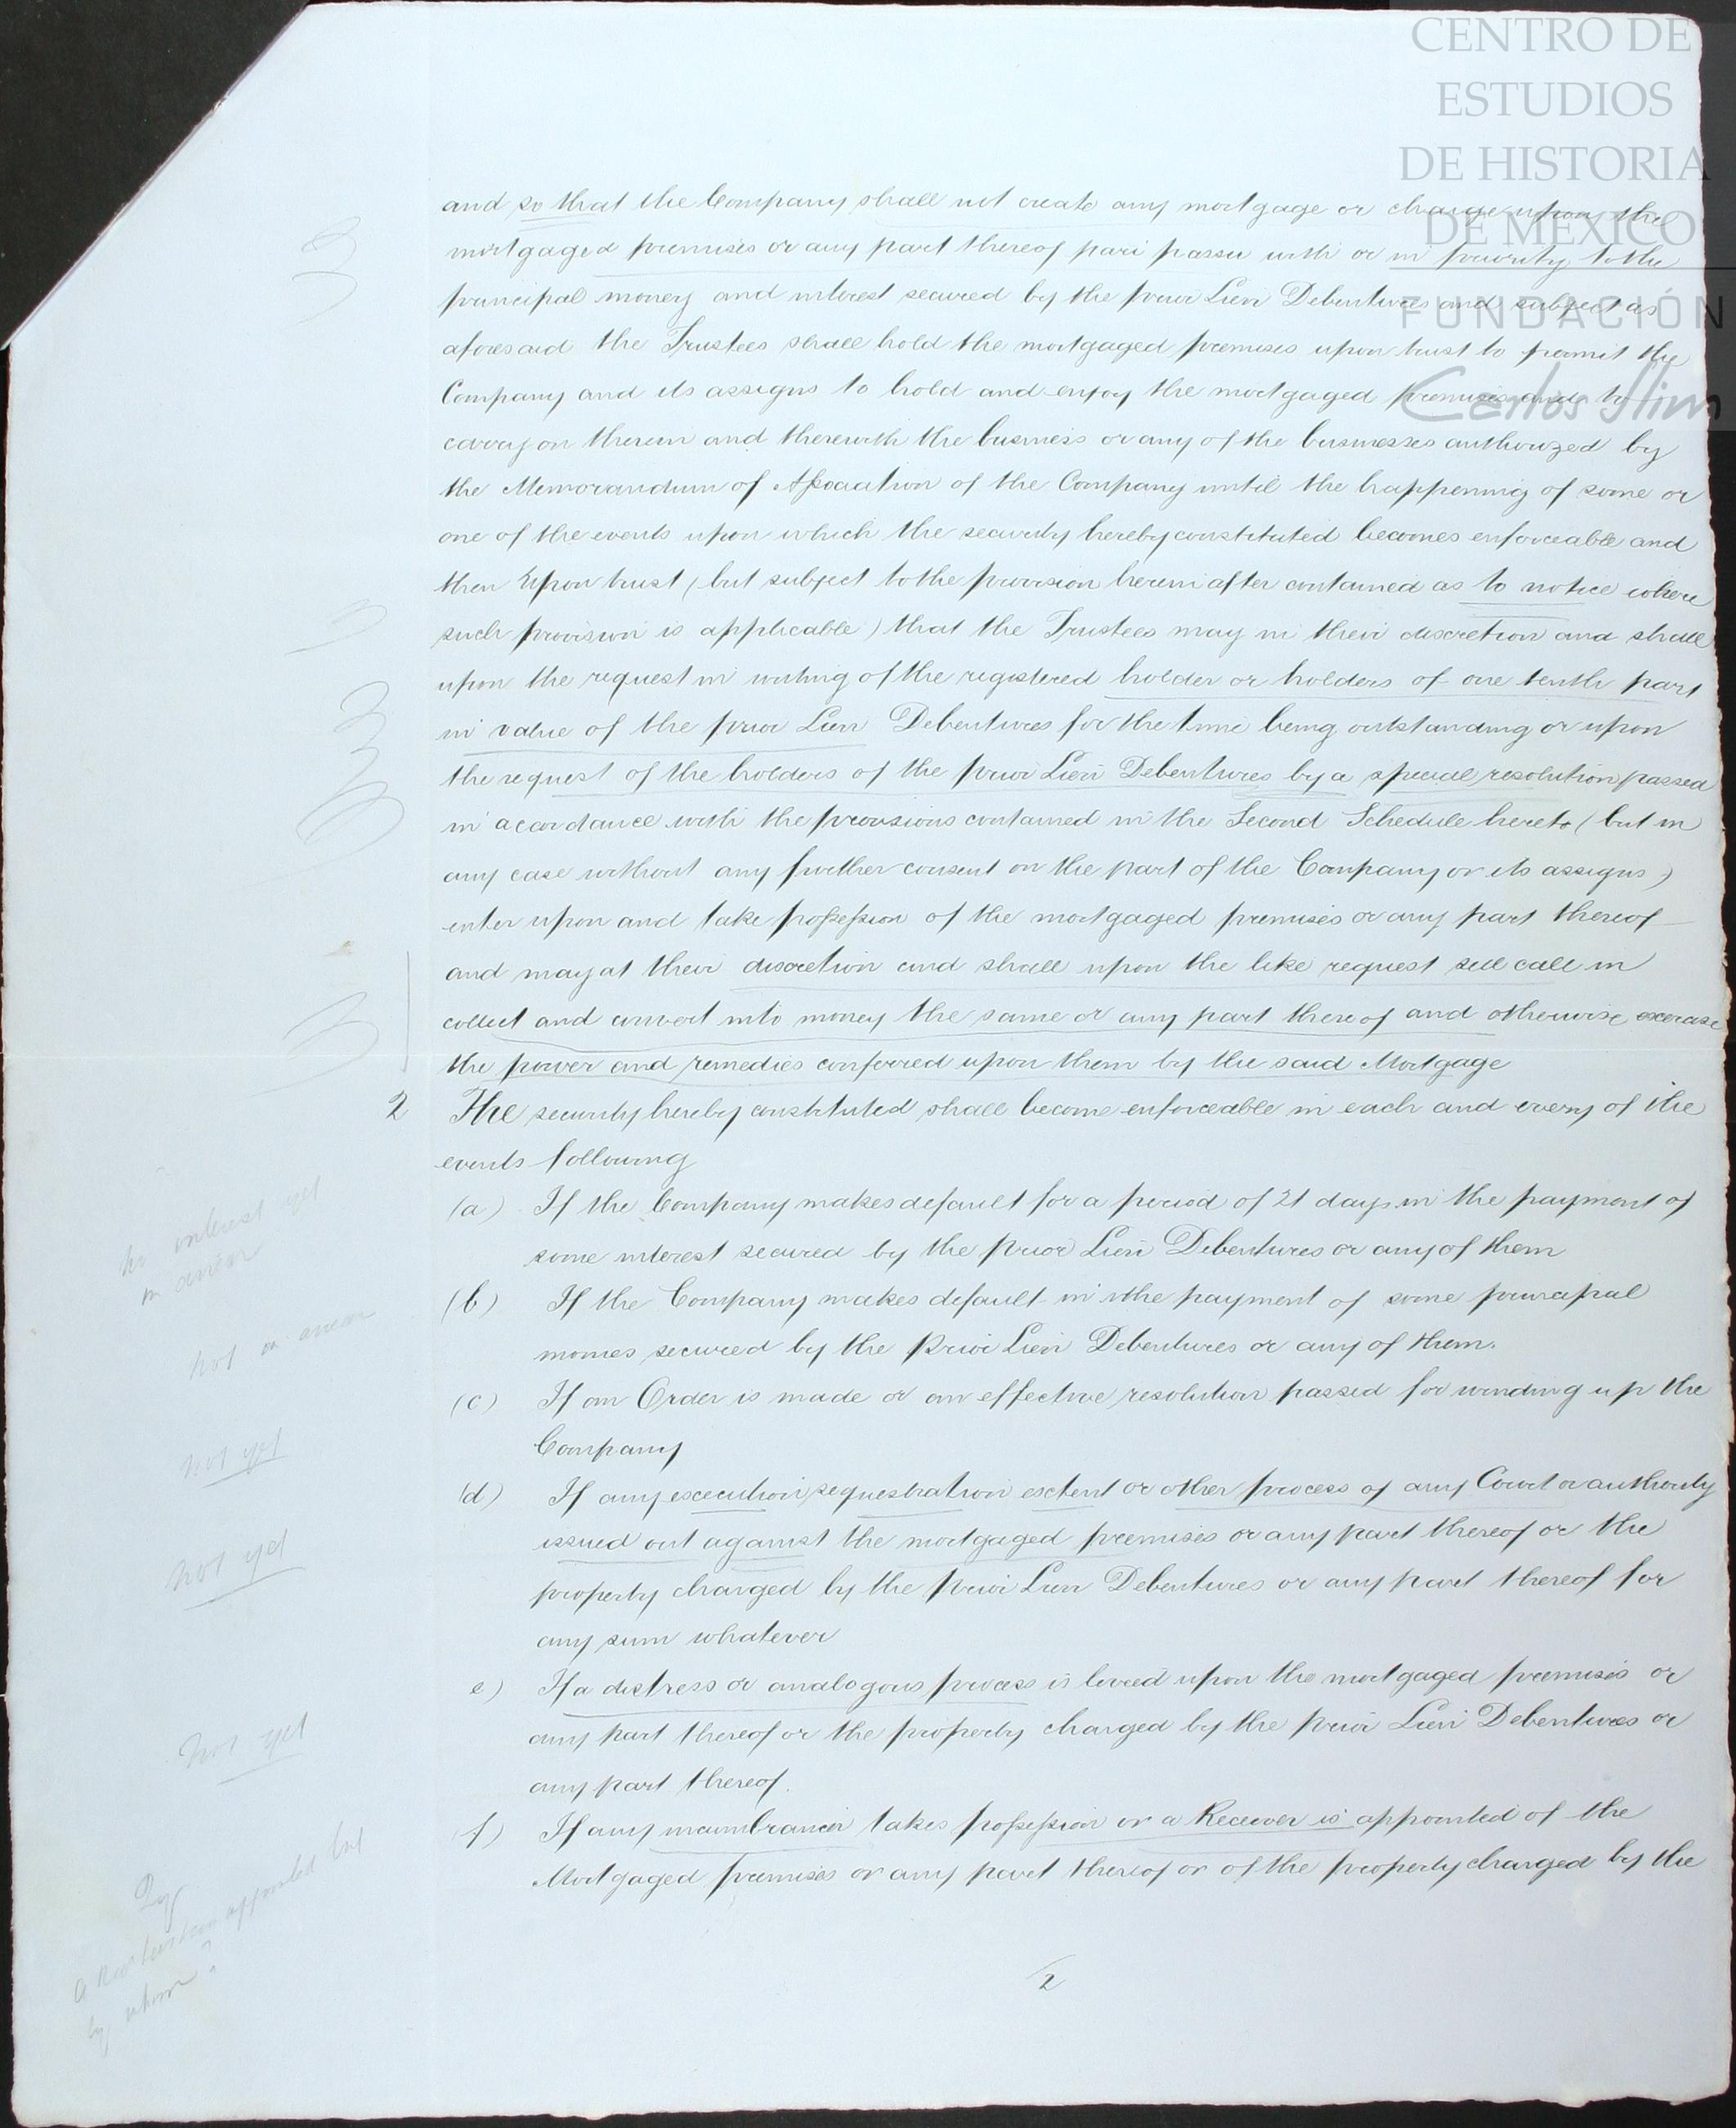 CENTRO DE
ESTUDIOS
DE HISTORIA
DE MÉXICO
FUNDACIÓN
Carlos Slim
and so that the Company shall not create any mortgage or charge upon the
mortgaged premises or any part thereof pari passu with or in priority to the
principal money and interest secured by the prior Lien Debentures and subject as
aforesaid the Trustees shall hold the mortgaged premises upon trust to permit the
Company and its assigns to hold and enjoy the mortgaged premises and to
carry on therein and therewith the business or any of the businesses authorized by
the Memorandum of Association of the Company until the happening of some or
one of the events upon which the security hereby constituted becomes enforceable and
then Upon trust (but subject to the provision hereinafter contained as to notice where
such provision is applicable) that the Trustees may in their discretion and shall
upon the request in writing of the registered holder or holders of one tenth part
in value of the prior Lien Debentures for the time being outstanding or upon
the request of the holders of the prior Lien Debentures by a special resolution passed
in accordance with the provisions contained in the Second Schedule hereto (but in
any case without any further consent on the part of the Company or its assigns)
enter upon and take possession of the mortgaged premises or any part thereof
and may at their discretion and shall upon the like request sell call in
collect and convert into money the same or any part thereof and otherwise exercise
the power and remedies conferred upon them by the said Mortgage
2 The security hereby constituted shall become enforceable in each and every of the
events following
(a) If the Company makes default for a period of 21 days in the payment of
some interest secured by the prior Lien Debentures or any of them
no interest yet
in arrear
(b) If the Company makes default in the payment of some principal
monies secured by the Prior Lien Debentures or any of them.
not in arrear
(c) If an Order is made or an effective resolution passed for winding up the
Company
not yet
(d) If any execution sequestration extent or other process of any Court or authority
issued out against the mortgaged premises or any part thereof or the
property charged by the prior Lien Debentures or any part thereof for
any sum whatever
not yet
e) If a distress or analogous process is levied upon the mortgaged premises or
any part thereof or the property charged by the prior Lien Debentures or
any part thereof.
not yet
(f) If any incumbrancer takes possession or a Receiver is appointed of the
Mortgaged premises or any part thereof or of the property charged by the
appointed but
by whom?
2